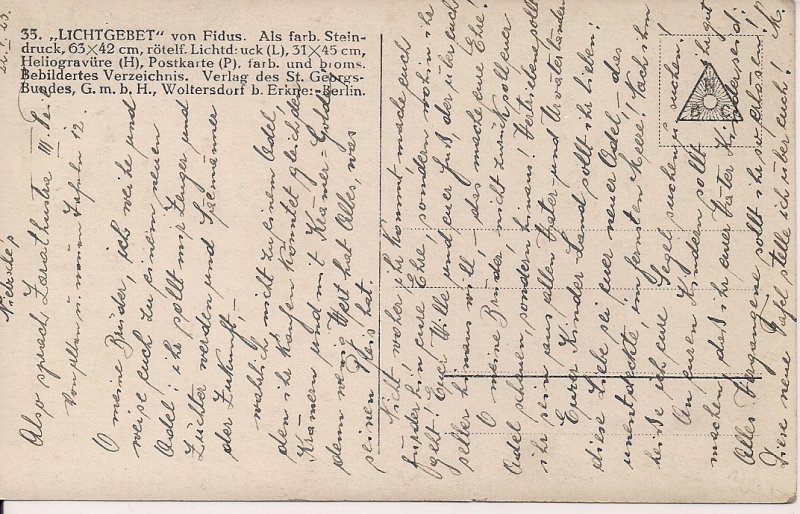 35. „LICHTGEBET“ von Fidus. Als farb. Stein-
druck, 63×42 cm, rötelf. Lichtdruck (L), 31×45 cm,
Heliogravüre (H), Postkarte (P). farb. und броms.
Bebildertes Verzeichnis. Verlag des St. Georgs-
Bundes, G. m. b. H., Woltersdorf b. Erkner-Berlin.
Nietzsche,
Also sprach Zarathustra III Te.
Von alten u. neuen Tafeln 12.
O meine Brüder, ich weihe und
weise euch zu einem neuen
Adel: ihr sollt mir Zeuger und
Züchter werden und Säemänner
der Zukunft, –
wahrlich, nicht zu einem Adel,
den ihr kaufen könntet gleich den
Krämern und mit Krämer-Golde:
denn wenig Wert hat Alles, was
seinen Preis hat.
Nicht woher ihr kommt, mache euch
fürderhin eure Ehre, sondern wohin ihr
geht! Euer Wille und euer Fuß, der über euch
selber hinaus will – das mache eure Ehre!
O meine Brüder, nicht zurück soll euer
Adel schauen, sondern hinaus! Vertriebene sollt
ihr sein aus allen Vater- und Urväterländern!
Eurer Kinder Land sollt ihr lieben:
diese Liebe sei euer neuer Adel, – das
unentdeckte, im fernsten Meere! Nach ihm
heiße ich eure Segel suchen u. suchen!
An euren Kindern sollt ihr gut
machen, daß ihr eurer Väter Kinder seid:
Alles Vergangene sollt ihr so erlösen!
Diese neue Tafel stelle ich über euch! M.